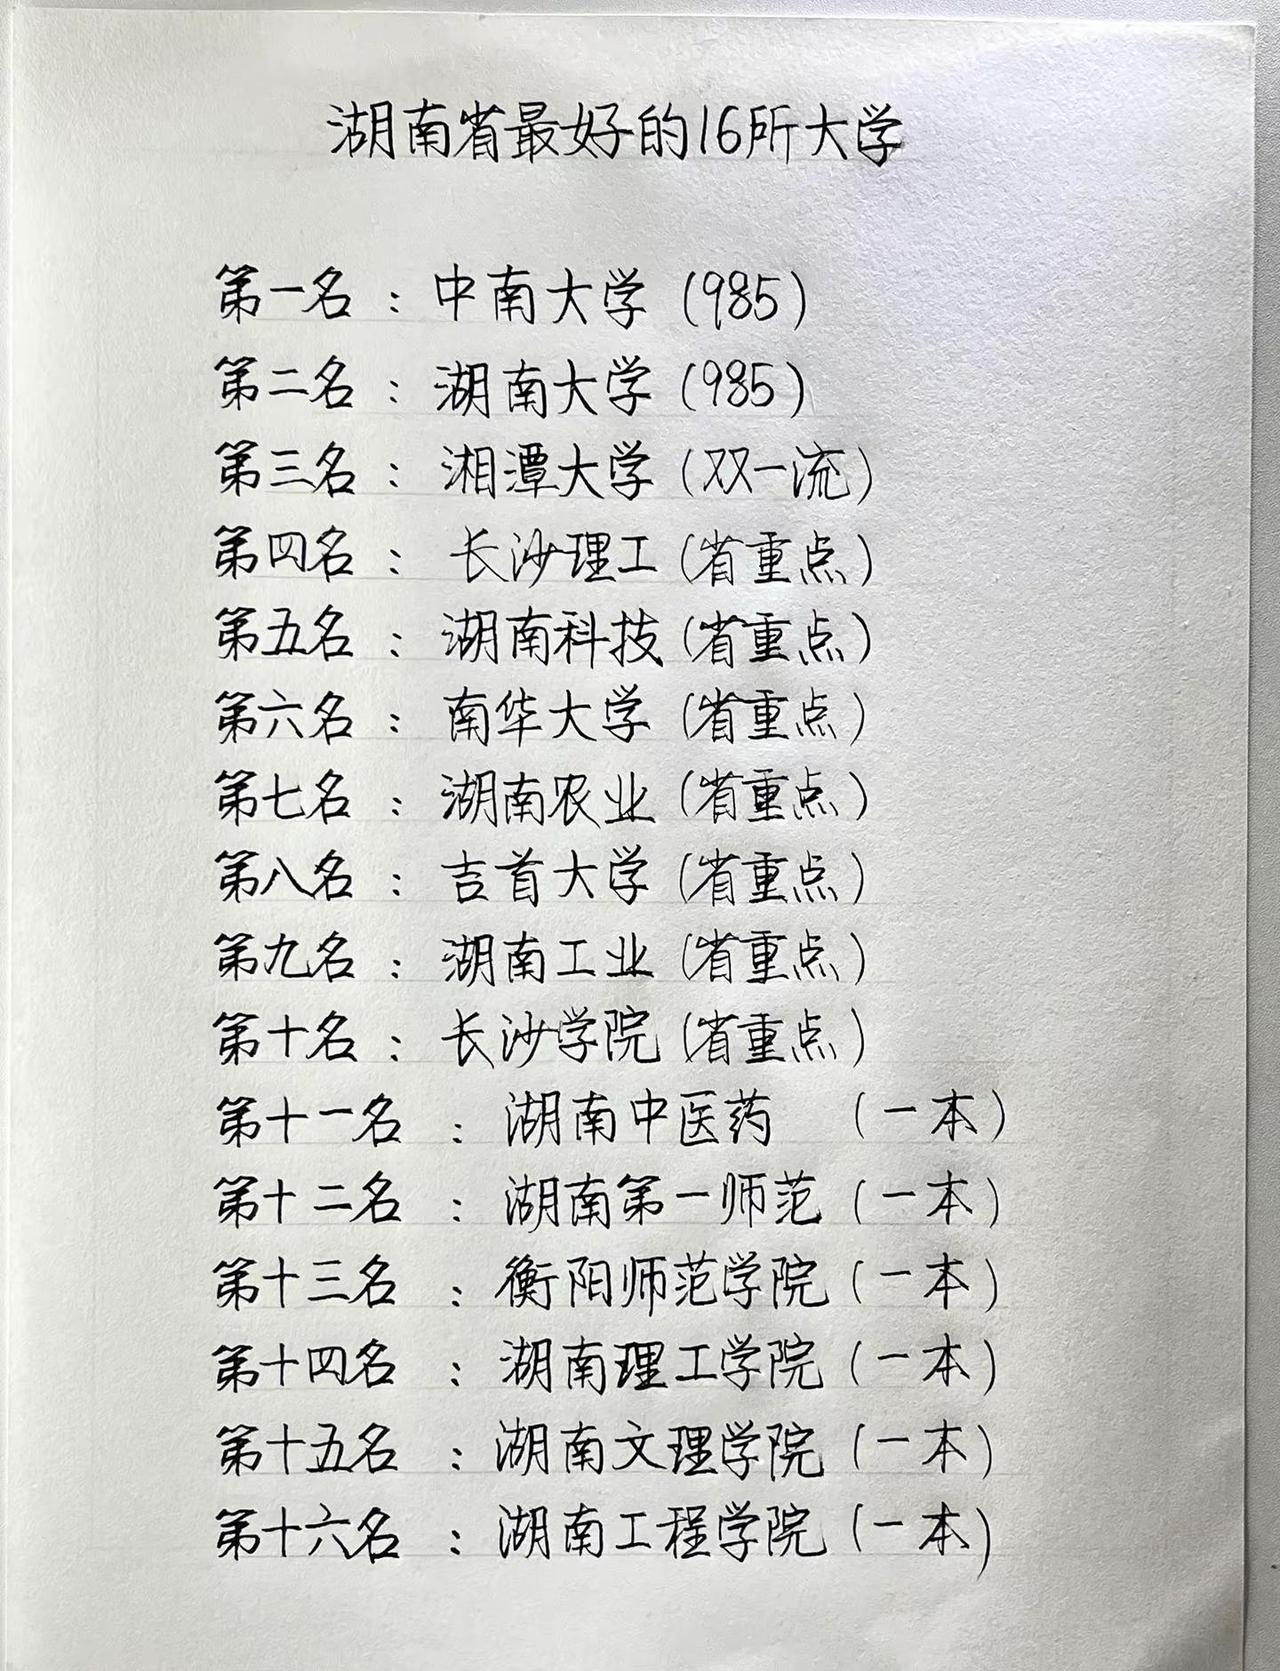 湖南省最好的16所大学
第一名：中南大学(985)
第二名：湖南大学(985)
第三名：湘潭大学(双一流)
第四名：长沙理工(省重点)
第五名：湖南科技(省重点)
第六名：南华大学(省重点)
第七名：湖南农业(省重点)
第八名：吉首大学(省重点)
第九名：湖南工业(省重点)
第十名：长沙学院(省重点)
第十一名：湖南中医药(一本)
第十二名：湖南第一师范(一本)
第十三名：衡阳师范学院(一本)
第十四名：湖南理工学院(一本)
第十五名：湖南文理学院(一本)
第十六名：湖南工程学院(一本)